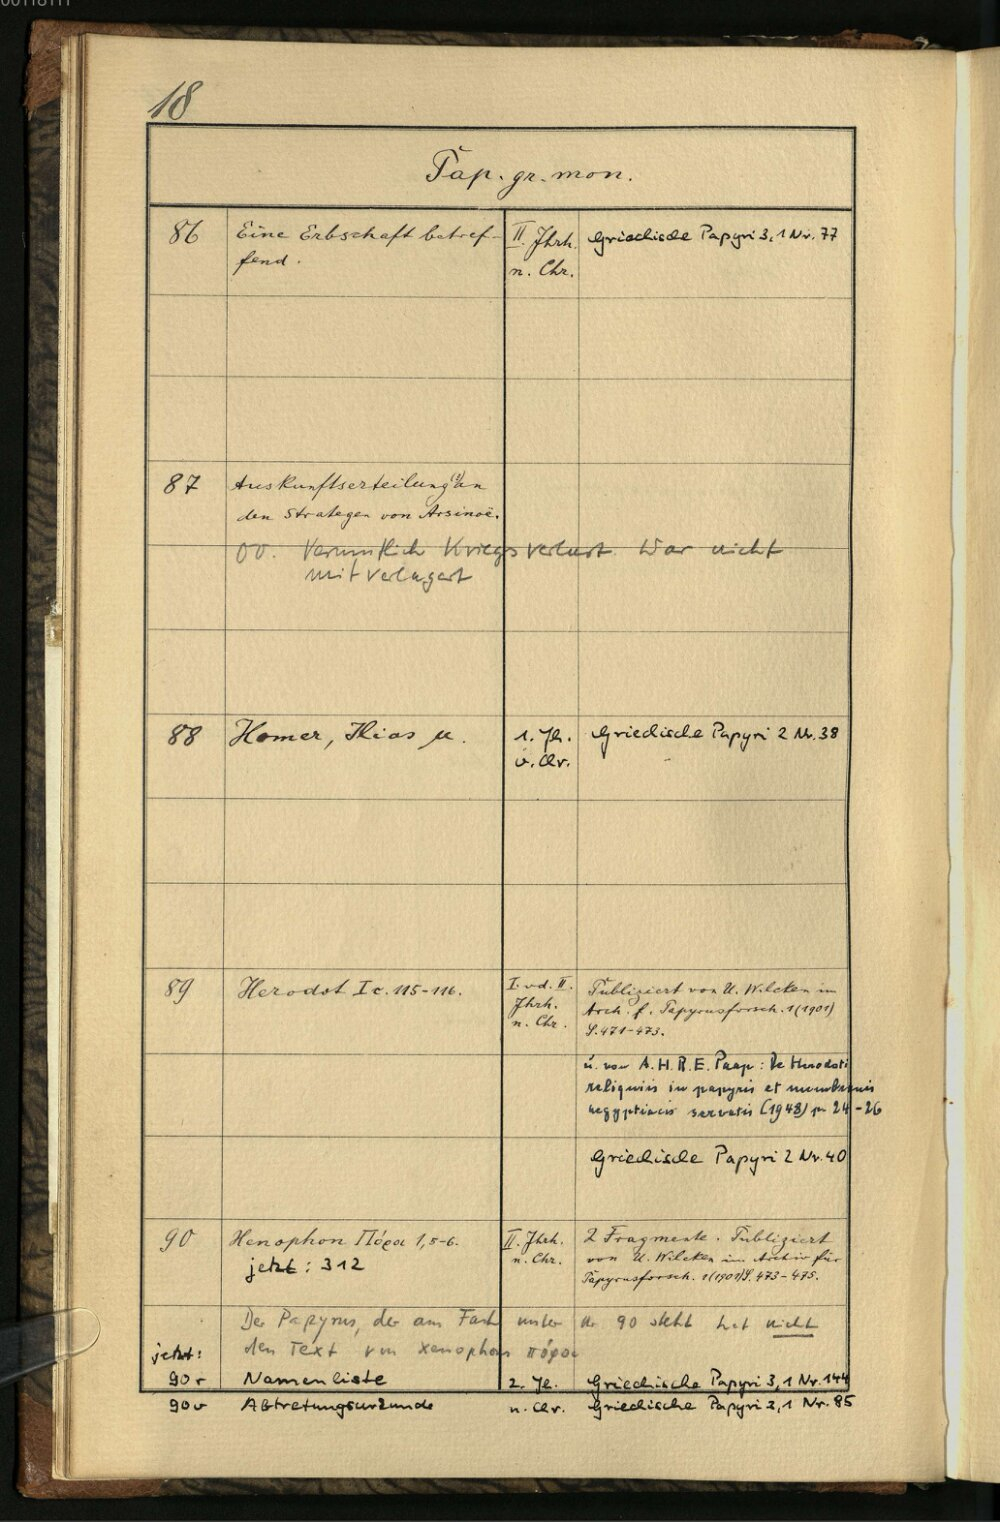 18
Pap. gr. mon.
86 Eine Erbschaft betref- II. Jhrh. Griechische Papyri 3,1 Nr. 77
fend. n. Chr.
87 Auskunftserteilung an
den Strategen von Arsinoë.
Vermutlich Kriegsverlust. War nicht
mit verlagert
88 Homer, Ilias 1. Jh. Griechische Papyri 2 Nr. 38
v. Chr.
89 Herodot I c. 115-116. I. od. II. Publiziert von U. Wilcken im
Jhrh. Arch. f. Papyrusforsch. 1 (1901)
n. Chr. S. 471-473.
u. von A.H.R.E. Paap: De Herodoti
reliquiis in papyris et membranis
aegyptiacis servatis (1948) p. 24-26
Griechische Papyri 2 Nr. 40
90 Xenophon Πόροι 1,5-6. II. Jhrh. 2 Fragmente. Publiziert
jetzt: 312 n. Chr. von U. Wilcken im Archiv für
Papyrusforsch. 1 (1901) S. 473-475.
Der Papyrus, der am Fach unter Nr. 90 steht hat nicht
den Text von Xenophons πόροι
jetzt:
90r Namenliste 2. Jh. Griechische Papyri 3,1 Nr. 144
90v Abtretungsurkunde n. Chr. Griechische Papyri 3,1 Nr. 85